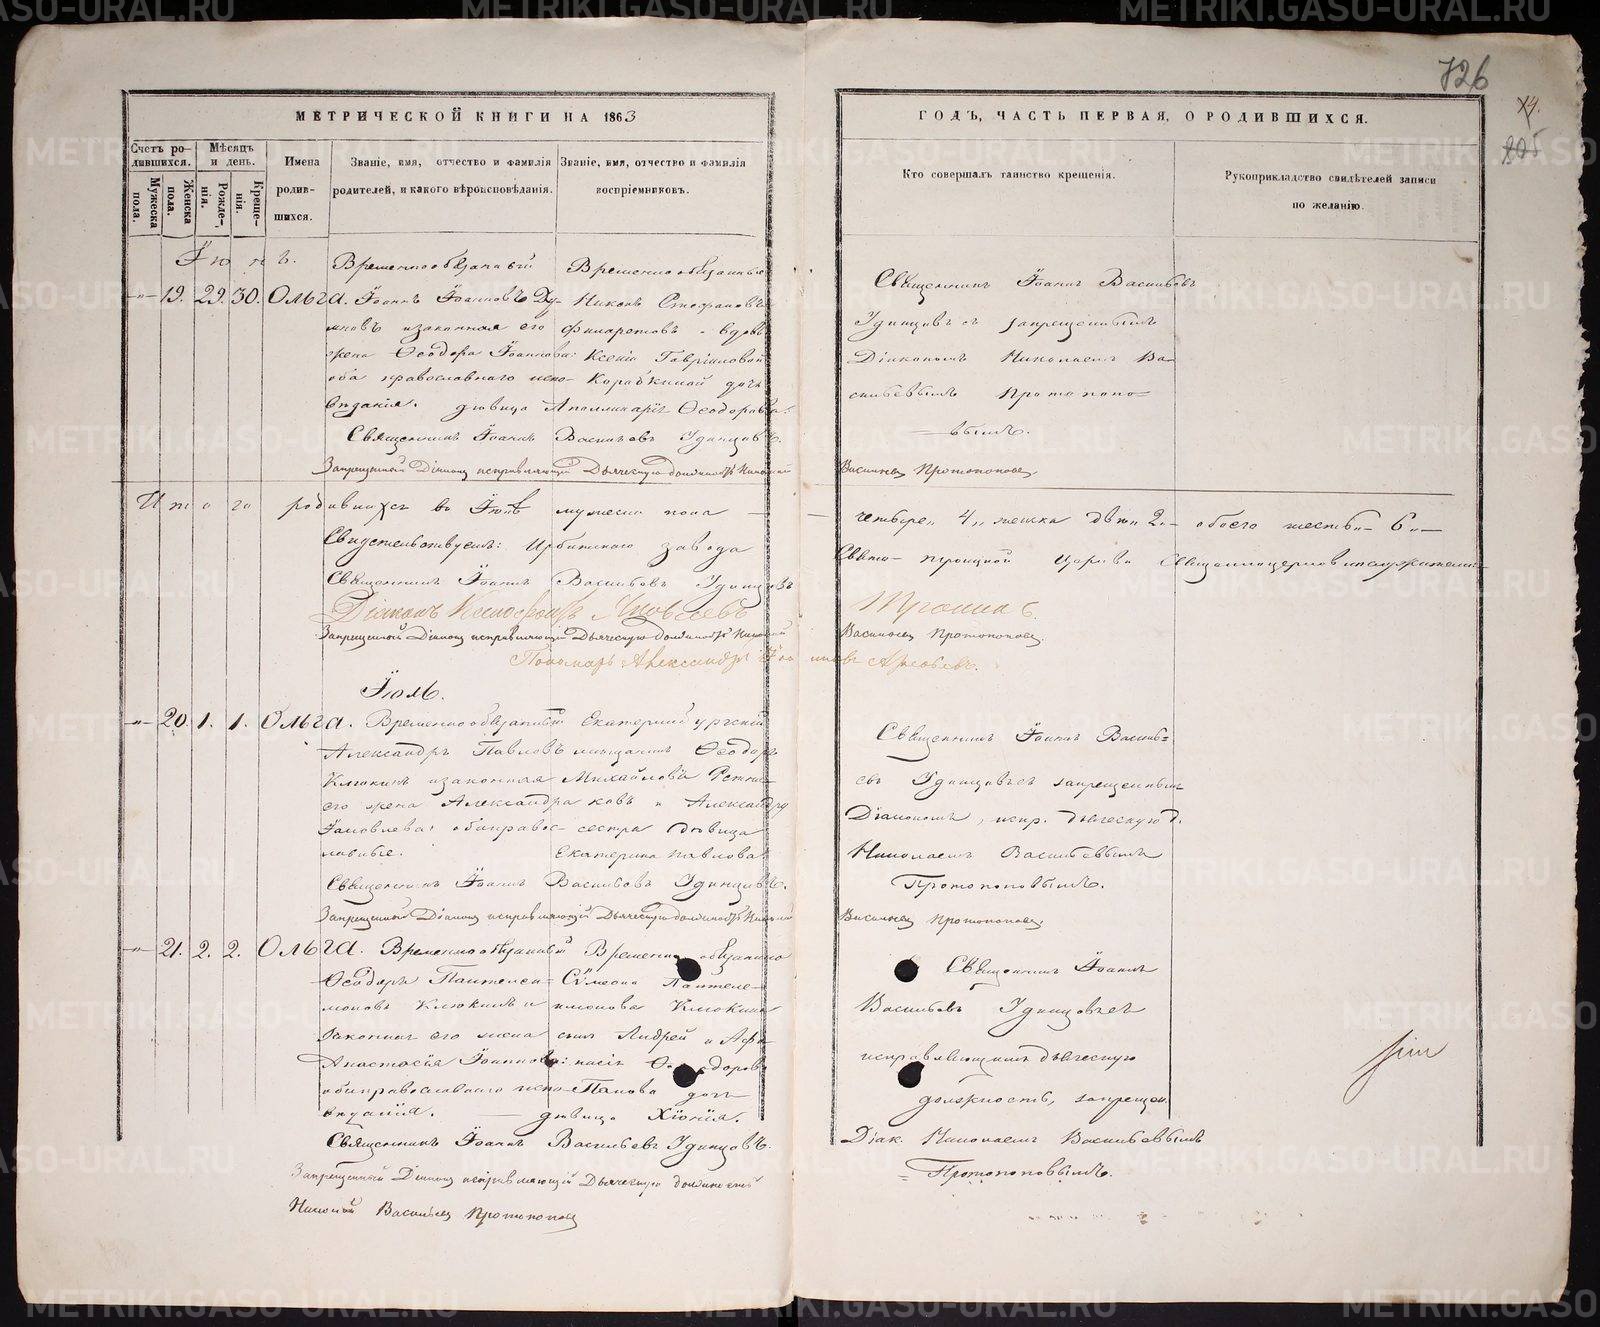 726
МЕТРИЧЕСКОЙ КНИГИ НА 1863
ГОДЪ, ЧАСТЬ ПЕРВАЯ, О РОДИВШИХСЯ.
Счетъ родившихся.
Мужеска пола.
Женска пола.
Мѣсяцъ и день.
Рожденія.
Крещенія.
Имена родившихся.
Званіе, имя, отчество и фамилія родителей, и какого вѣроисповѣданія.
Званіе, имя, отчество и фамилія воспріемниковъ.
Кто совершалъ таинство крещенія.
Рукоприкладство свидѣтелей записи по желанію.
Іюнь.
19. 29. 30. Ольга.
Временнообязанный
Іоаннъ Іоанновъ Ду-
мновъ и законная его
жена Ѳеодора Іоаннова:
оба православнаго испо-
вѣданія.
Временнообязанные
Никонъ Стефановъ
Филаретовъ и вдовы
Ксеніи Гавріиловой
Корабкиной дочь
дѣвица Аполлинарія Ѳеодорова.
Священникъ Іоаннъ Васильевъ
Удинцовъ съ запрещеннымъ
Діакономъ Николаемъ Ва-
сильевымъ Протопопо-
вымъ.
Священникъ Іоаннъ Васильевъ Удинцовъ.
Запрещенный Діаконъ исправляющій Дьяческую должность Николай Васильевъ Протопоповъ
Итого родившихся въ Іюнѣ мужеска пола четыре „4„ женска двѣ „2„ обоего шесть „6„
Свидетельствуемъ: Ирбитскаго завода Свято-Троицкой Церкви Священноцерковнослужители
Священникъ Іоаннъ Васильевъ Удинцовъ
Діаконъ Ксенофонтъ Яковлевъ
Запрещенный Діаконъ исправляющій Дьяческую должность Николай Васильевъ Протопоповъ.
Пономарь Александръ Іоанновъ
Іюль.
20. 1. 1. Ольга.
Временнообязанный
Александръ Павловъ
Клюкинъ и законная
его жена Александра
Іаковлева: оба правос-
лавные.
Екатеринбургскій
мѣщанинъ Ѳеодоръ
Михайловъ
и Александру
сестра дѣвица
Екатерина Павлова.
Священникъ Іоаннъ Василь-
евъ Удинцовъ съ запрещеннымъ
Діакономъ, испр. дьяческую д.
Николаемъ Васильевымъ
Протопоповымъ.
Священникъ Іоаннъ Васильевъ Удинцовъ.
Запрещенный Діаконъ исправляющій Дьяческую должность Николай Васильевъ Протопоповъ.
21. 2. 2. Ольга.
Временнообязанный
Ѳеодоръ Пантелеи-
моновъ Клюкинъ и
законная его жена
Анастасія Іоаннова:
оба православнаго испо-
вѣданія.
Временно обязаннаго
Сѵмеона Пантеле-
имонова Клюкина
сынъ Андрей и Афа-
насія Ѳеодорова
Попова дочь
дѣвица Хіонія.
Священникъ Іоаннъ
Васильевъ Удинцовъ съ
исправляющимъ дьяческую
должность, запрещен.
Діак. Николаемъ Васильевымъ
Протопоповымъ.
Священникъ Іоаннъ Васильевъ Удинцовъ.
Запрещенный Діаконъ исправляющій Дьяческую должность
Николай Васильевъ Протопоповъ
METRIKI.GASO-URAL.RU